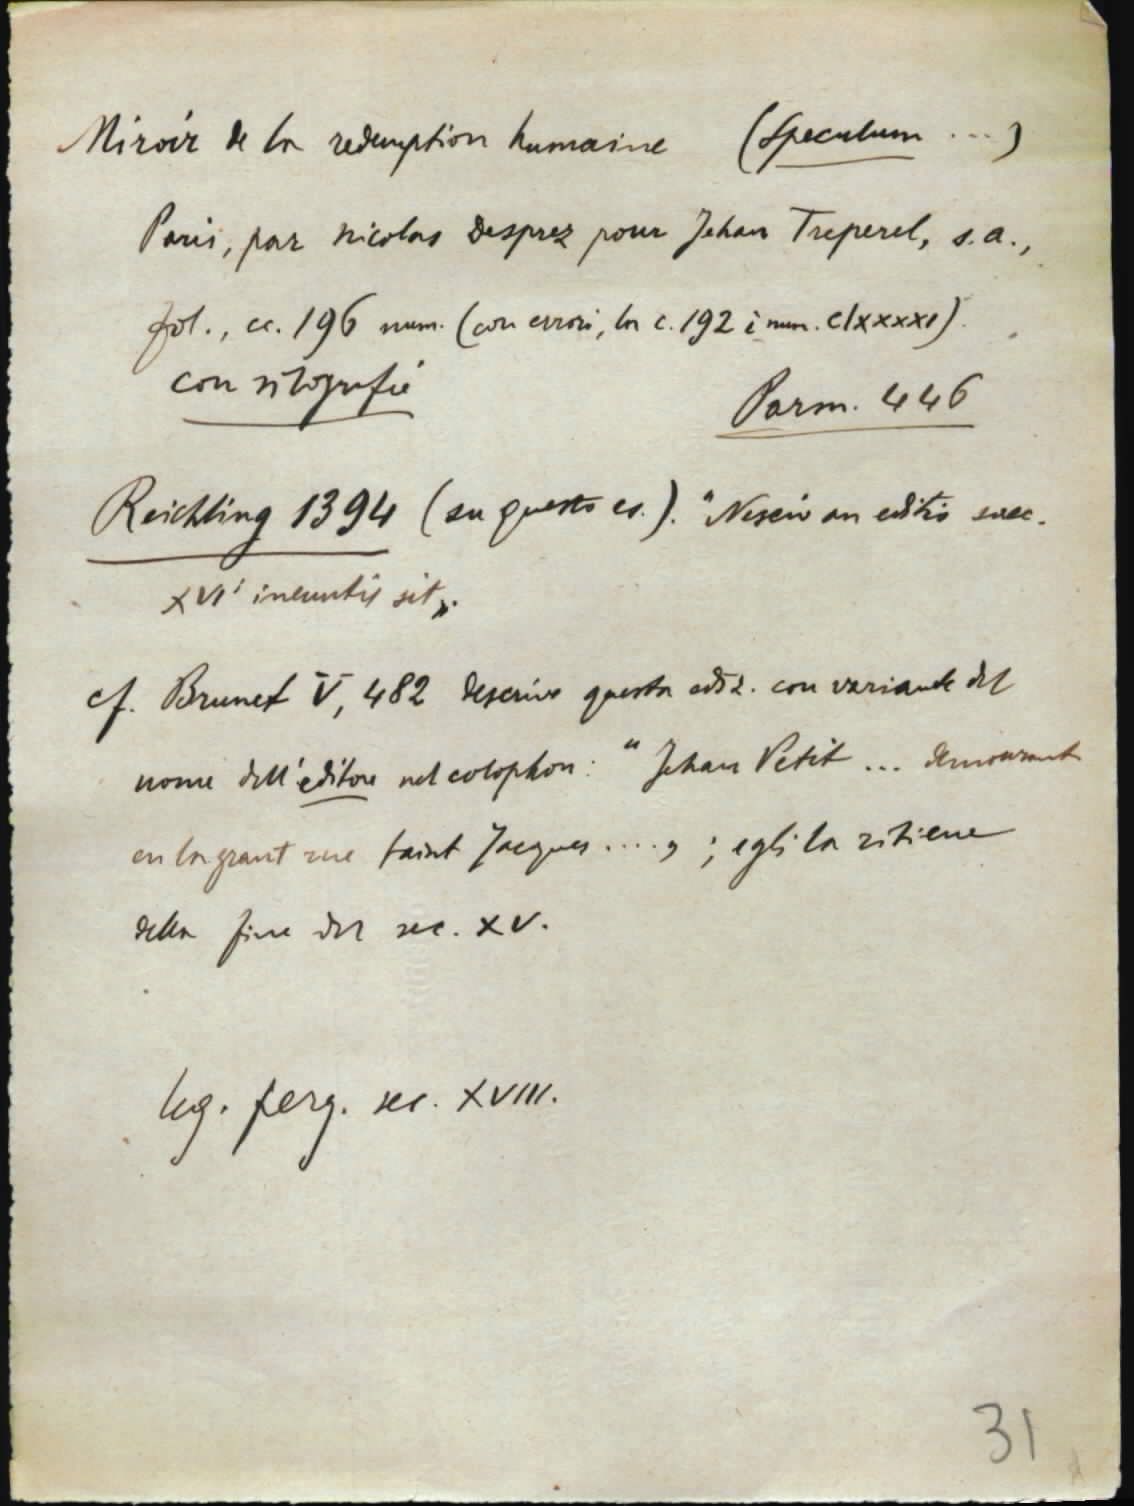 Miroir de la redemption humaine (Speculum ...)
Paris, par Nicolas Desprez pour Jehan Treperel, s.a.,
fol., cc. 196 num. (con errori, la c. 192 è num. clxxxxi).
con silografie
Parm. 446
Reichling 1394 (su questo es.). "Nescio an editio saec.
XVI ineuntis sit".
cf. Brunet V, 482 descrive questa ediz. con variante del
nome dell'editore nel colophon: "Jehan Petit ... demourant
en la grant rue saint Jacques ...."; egli la ritiene
della fine del sec. XV.
leg. perg. sec. XVIII.
31